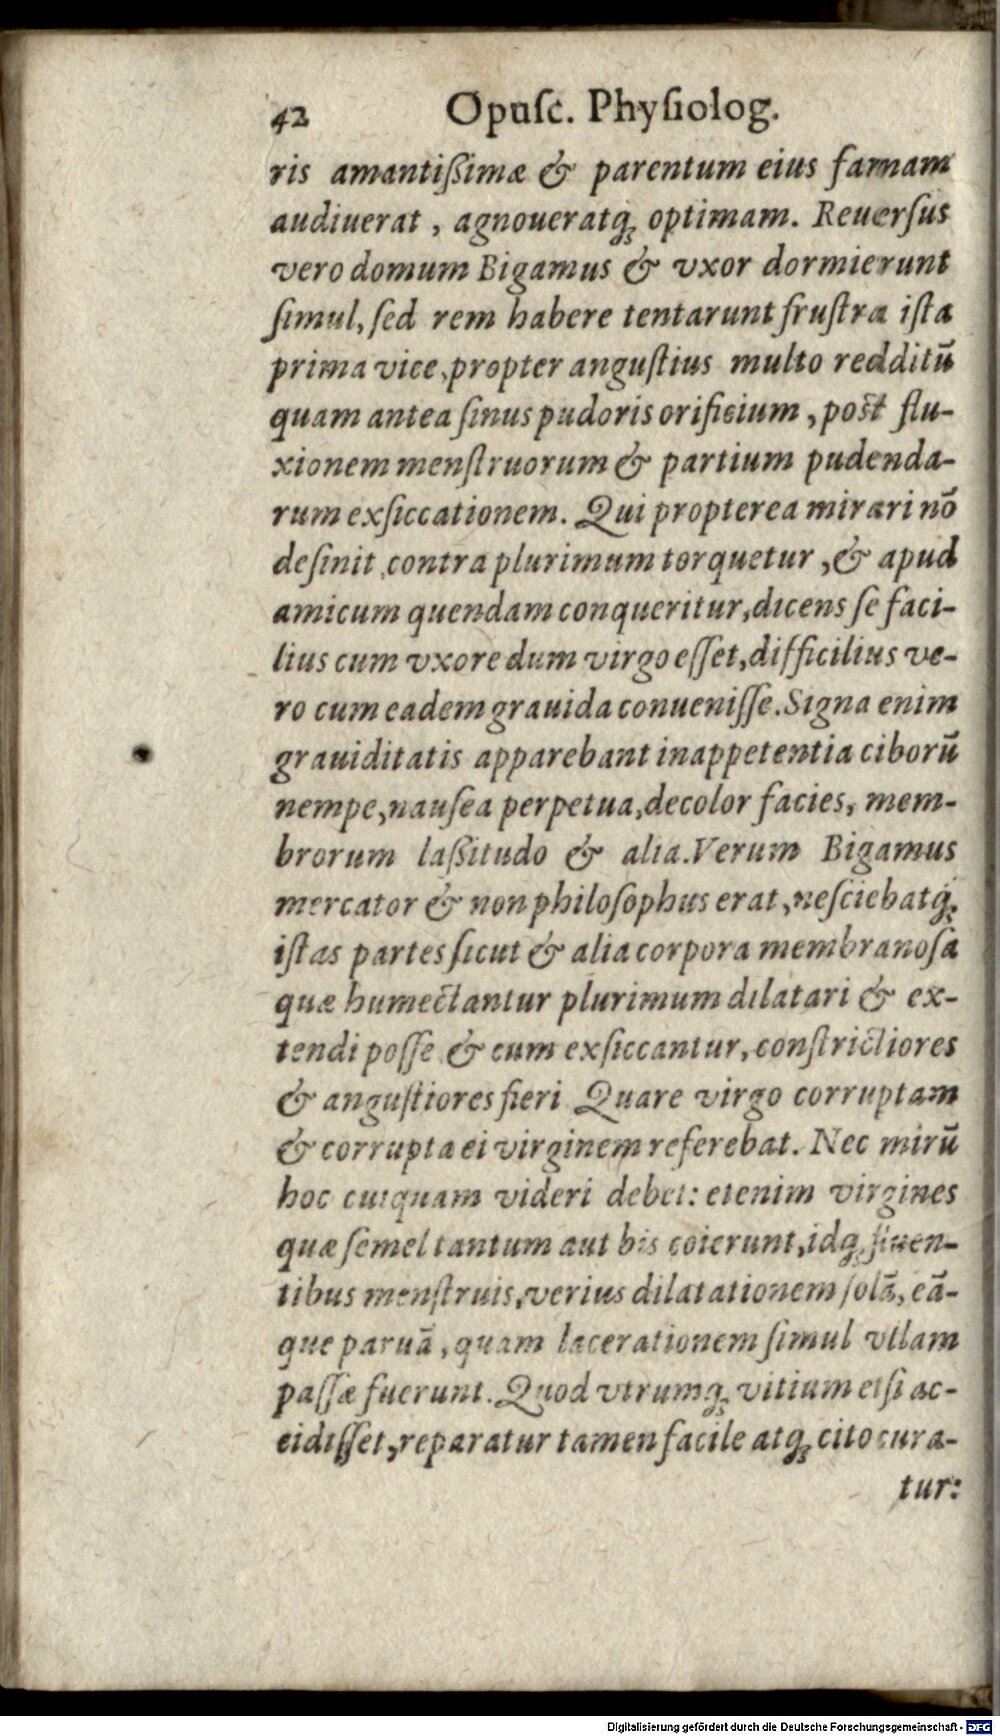 42 Opuſc. Phyſiolog.
ris amantiſsimæ & parentum eius famam
audiuerat, agnoueratq́; optimam. Reuerſus
vero domum Bigamus & vxor dormierunt
ſimul, ſed rem habere tentarunt fruſtra iſta
prima vice, propter anguſtius multo redditū
quam antea ſinus pudoris orificium, poſt flu-
xionem menſtruorum & partium pudenda-
rum exſiccationem. Qui propterea mirari nō
deſinit, contra plurimum torquetur, & apud
amicum quendam conqueritur, dicens ſe faci-
lius cum vxore dum virgo eſſet, difficilius ve-
ro cum eadem grauida conueniſſe. Signa enim
grauiditatis apparebant inappetentia ciborū
nempe, nauſea perpetua, decolor facies, mem-
brorum laſsitudo & alia. Verum Bigamus
mercator & non philoſophus erat, neſciebatq́;
iſtas partes ſicut & alia corpora membranoſa
quæ humectantur plurimum dilatari & ex-
tendi poſſe & cum exſiccantur, conſtrictiores
& anguſtiores fieri Quare virgo corruptam
& corrupta ei virginem referebat. Nec mirū
hoc cuiquam videri debet: etenim virgines
quæ ſemel tantum aut bis coierunt, idq́; fluen-
tibus menſtruis, verius dilatationem ſolā, eā-
que paruā, quam lacerationem ſimul vllam
paſſæ fuerunt. Quod vtrumq; vitium etſi ac-
cidiſſet, reparatur tamen facile atq; cito cura-
tur:
Digitalisierung gefördert durch die Deutsche Forschungsgemeinschaft - DFG